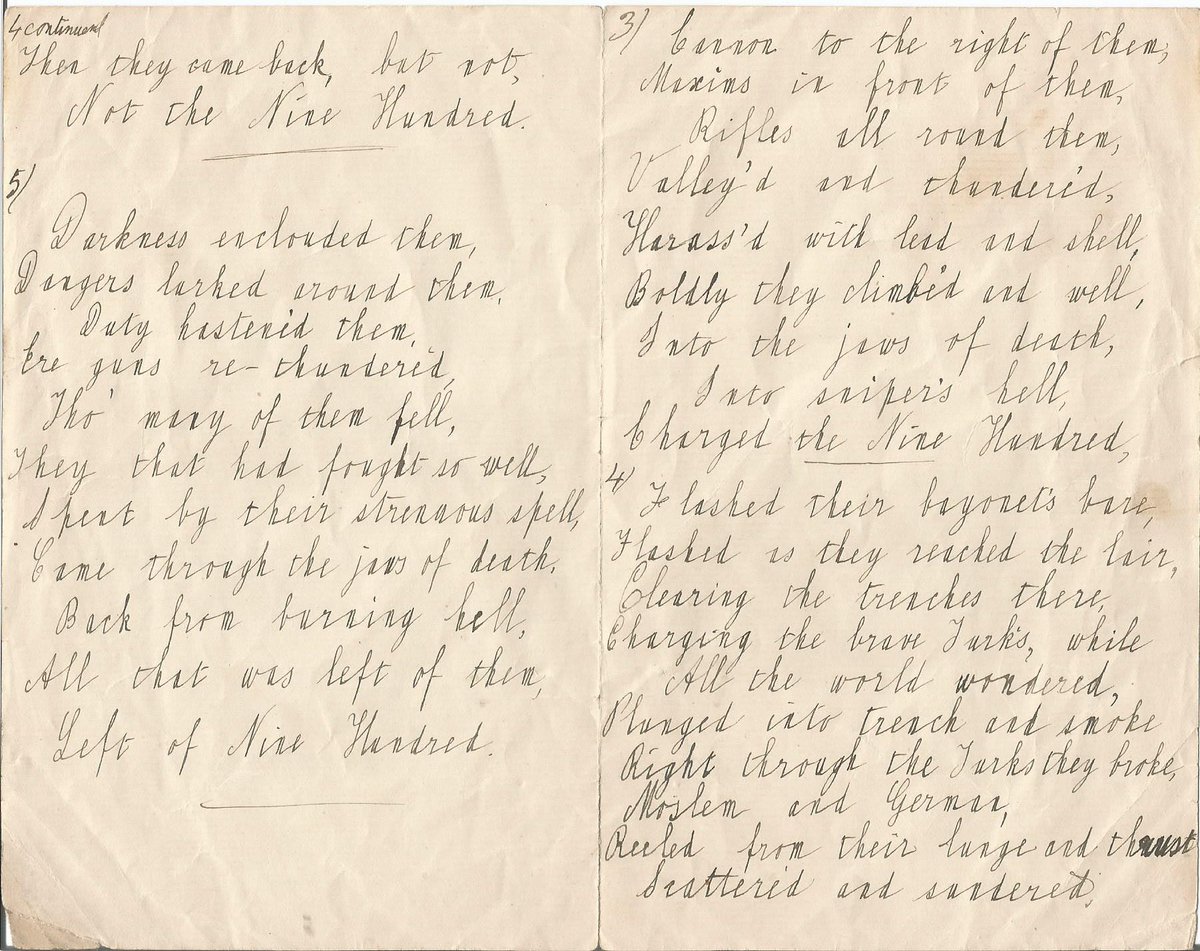 4 continued
Then they came back, but not,
Not the Nine Hundred.
5)
Darkness enclouded them,
Dangers lurked around them,
Duty hasten'd them,
Ere guns re-thunder'd,
Tho' many of them fell,
They that had fought so well,
Spent by their strenuous spell,
Came through the jaws of death,
Back from burning hell,
All that was left of them,
Left of Nine Hundred.
3)
Cannon to the right of them,
Maxims in front of them,
Rifles all round them,
Valley'd and thunder'd,
Harass'd with lead and shell,
Boldly they climb'd and well,
Into the jaws of death,
Into sniper's hell,
Charged the Nine Hundred,
4)
Flashed their bayonet's bare,
Flashed as they reached the lair,
Clearing the trenches there,
Charging the brave Turk's, while
All the world wondered,
Plunged into trench and smoke
Right through the Turks they broke,
Moslem and German,
Reeled from their lunge and thrust
Scatter'd and sundered,